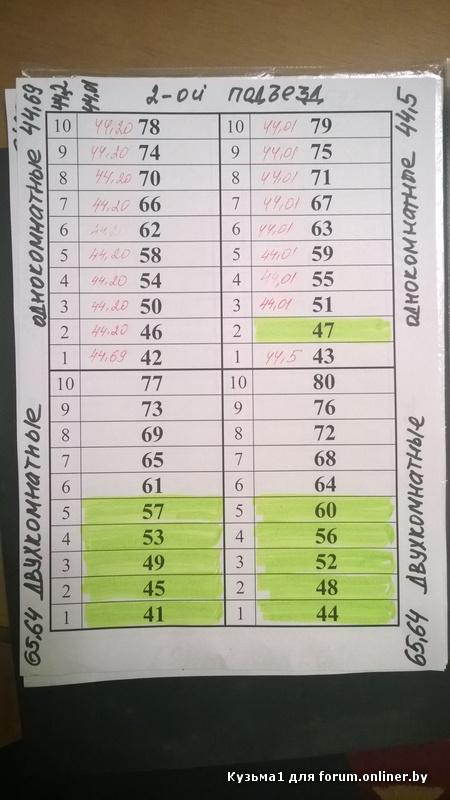 2-ой подъезд
44,2
44,01
однокомнатные 44,69
однокомнатные 44,5
10 44,20 78 10 44,01 79
9 44,20 74 9 44,01 75
8 44,20 70 8 44,01 71
7 44,20 66 7 44,01 67
6 62 6 44,01 63
5 44,20 58 5 44,01 59
4 44,20 54 4 44,01 55
3 44,20 50 3 44,01 51
2 44,20 46 2 47
1 44,69 42 1 44,5 43
65,64 двухкомнатные
65,64 двухкомнатные
10 77 10 80
9 73 9 76
8 69 8 72
7 65 7 68
6 61 6 64
5 57 5 60
4 53 4 56
3 49 3 52
2 45 2 48
1 41 1 44
Кузьма1 для forum.onliner.by